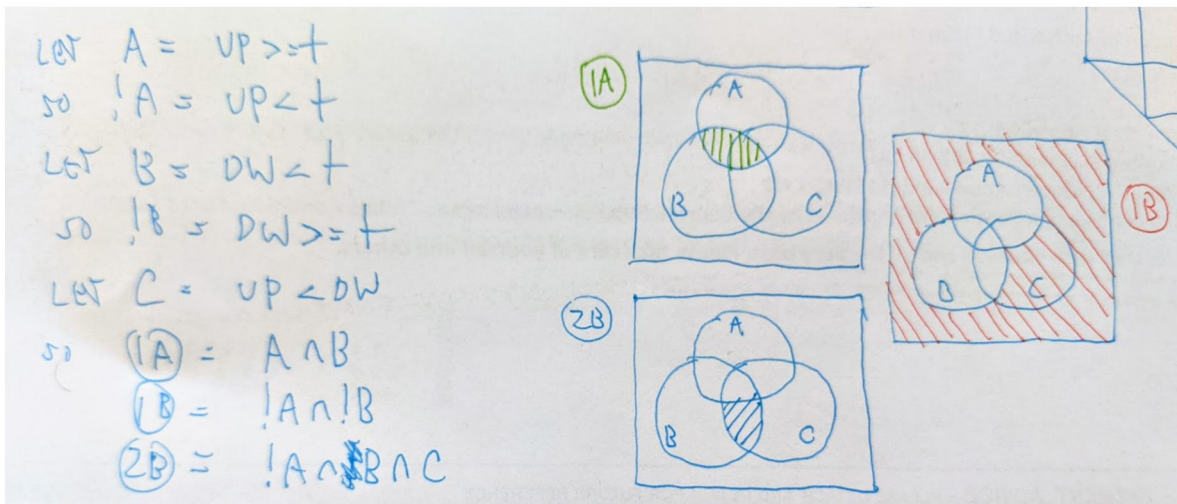 LET A = UP >= t
SO !A = UP < t
LET B = DW < t
SO !B = DW >= t
LET C = UP < DW
SO 1A = A ∩ B
1B = !A ∩ !B
2B = !A ∩ B ∩ C
1A
A
B
C
1B
A
B
C
2B
A
B
C